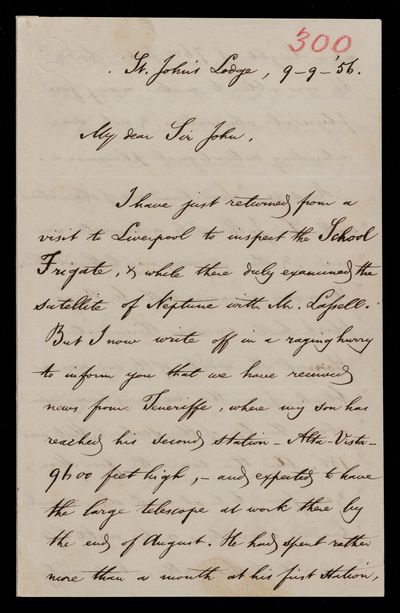 300
St. John's Lodge, 9-9-'56.
My dear Sir John,
I have just returned from a
visit to Liverpool to inspect the School
Frigate, & while there duly examined the
satellite of Neptune with Mr. Lassell.
But I now write off in a raging hurry
to inform you that we have received
news from Teneriffe, where my son has
reached his second station - Alta-Vista -
9600 feet high, - and expected to have
the large telescope at work there by
the end of August. He had spent rather
more than a month at his first station,